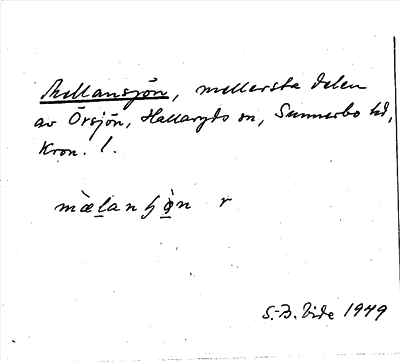 Mellansjön, mellersta delen
av Örsjön, Hallaryds sn, Sunnerbo hd,
Kron. l.
mæ̀lanʃø̀n r
S.-B. Vide 1949